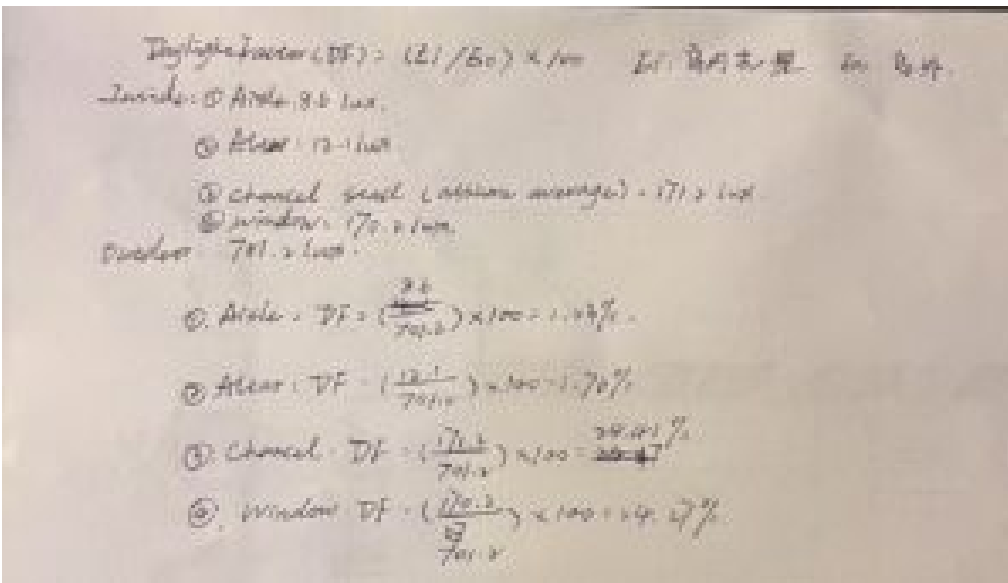 Daylight Factor (DF) = (Ei/Eo) × 100 Ei: 室内 Eo: 室外.
Inside: ① Aisle: 9.6 lux.
② Altar: 12.1 lux
③ Chancel (assume average) = 171.2 lux.
④ window: 170.2 lux.
Outdoor: 701.2 lux.
① Aisle: DF = ( / 701.2) × 100 =
② Altar: DF = (12.1 / 701.2) × 100 = 1.70%
③ Chancel: DF = (171.2 / 701.2) × 100 = 24.41%
④ Window DF = (170.2 / 701.2) × 100 = 24.27%